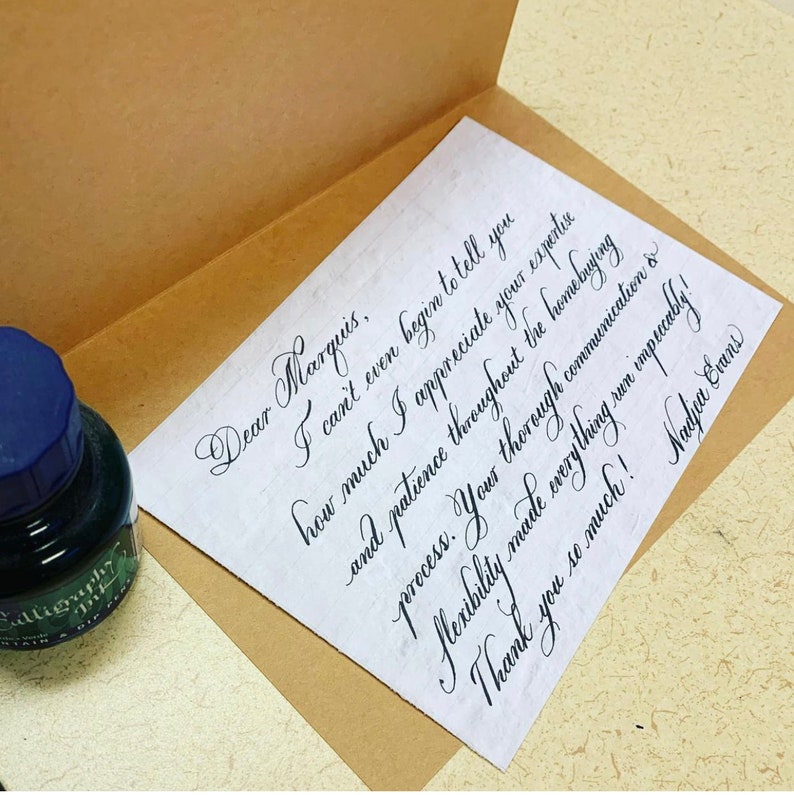 Dear Marquis,
I can't even begin to tell you
how much I appreciate your expertise
and patience throughout the homebuying
process. Your thorough communication &
flexibility made everything run impeccably!
Thank you so much! Nadjea Evans
Calligraphy
Ink
Verde
NTAIN & DIP PEN